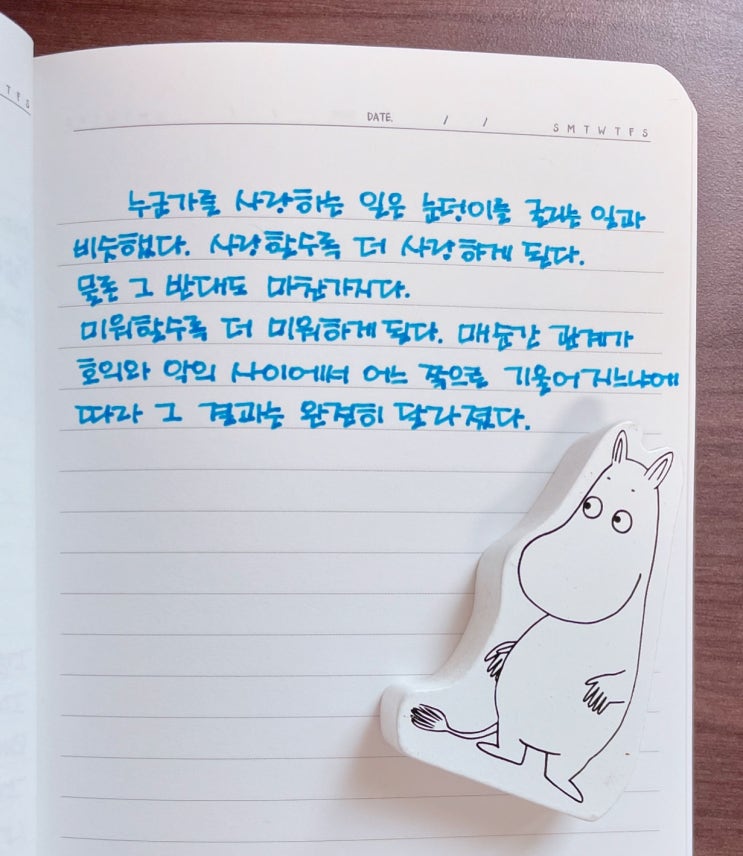 DATE. / /
S M T W T F S
T F S
누군가를 사랑하는 일은 눈덩이를 굴리는 일과
비슷했다. 사랑할수록 더 사랑하게 된다.
물론 그 반대도 마찬가지다.
미워할수록 더 미워하게 된다. 매 순간 관계가
호의와 악의 사이에서 어느 쪽으로 기울어지느냐에
따라 그 결과는 완전히 달라졌다.